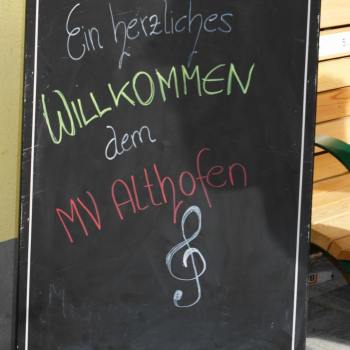 Ein herzliches
WILLKOMMEN
dem
MV Althofen